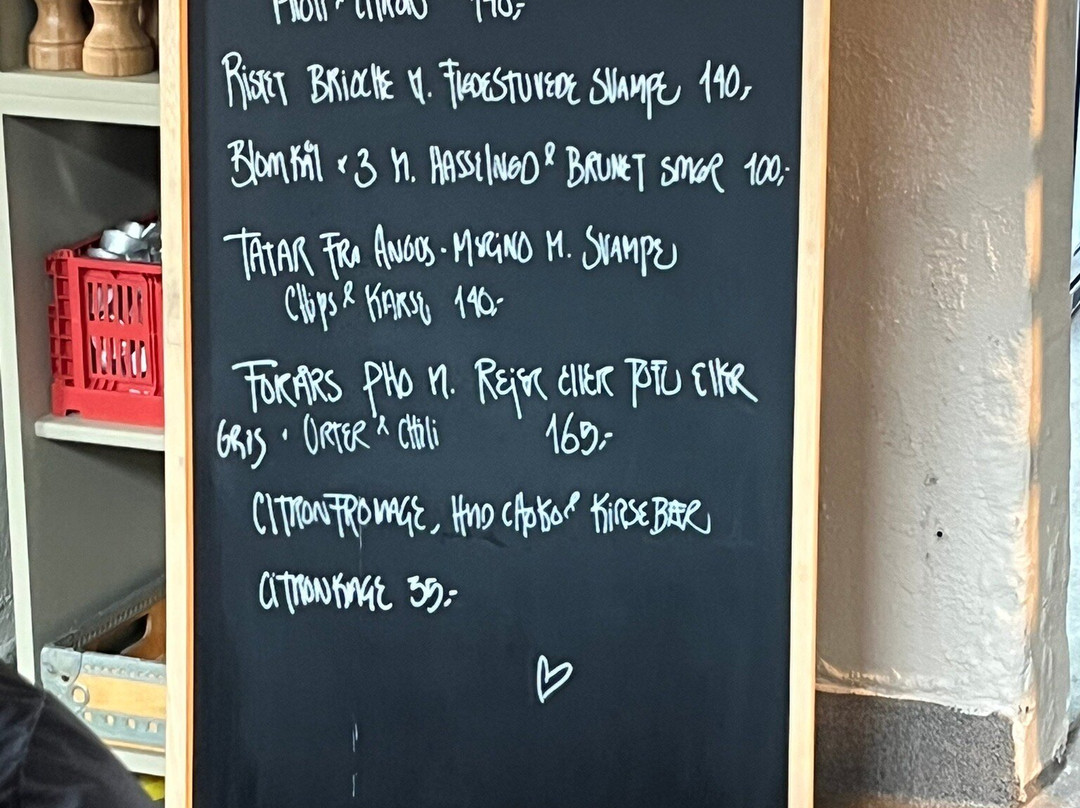 CITRON 140,-
RISTET BRIOCHE M. FLØDESTUVEDE SVAMPE 140,-
BLOMKÅL × 3 M. HASSELNØD & BRUNET SMØR 100,-
TATAR FRA ANGUS · MERINO M. SVAMPE
CHIPS & KARSE 140,-
FORÅRS PHO M. REJER ELLER TOFU ELLER
GRIS · URTER & CHILI 165,-
CITRONFROMAGE, HVID CHOKO & KIRSEBÆR
CITRONKAGE 35,-